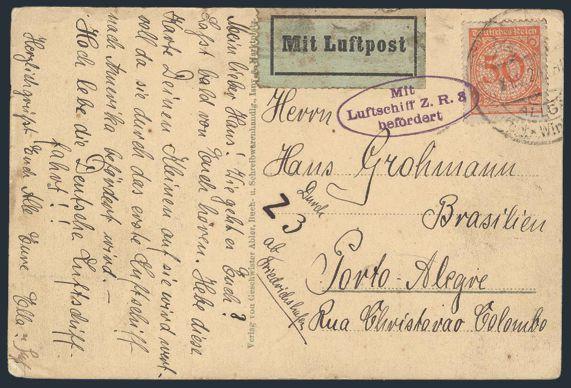 Mein lieber Hans! Wie geht es Euch?
Lasst bald von Euch hören. Habe diese
Karte Deinen Kleinen auf sie wird wert-
voll da sie durch das erste Luftschiff
nach Amerika befördert wird. –
Hoch lebe die Deutsche Luftschiff-
fahrt!
Herzlich grüsst Euch Alle Eure Ella
Verlag von Geschwister Ahler, Buch- u. Schreibwarenhandlg.,
Mit Luftpost
Deutsches Reich
50
Mit
Luftschiff Z. R. 3
befördert
Herrn
Hans Grohmann
Brasilien
Porto-Alegre
Rua Christovao Colombo
Durch
Z 3
ab Friedrichshafen